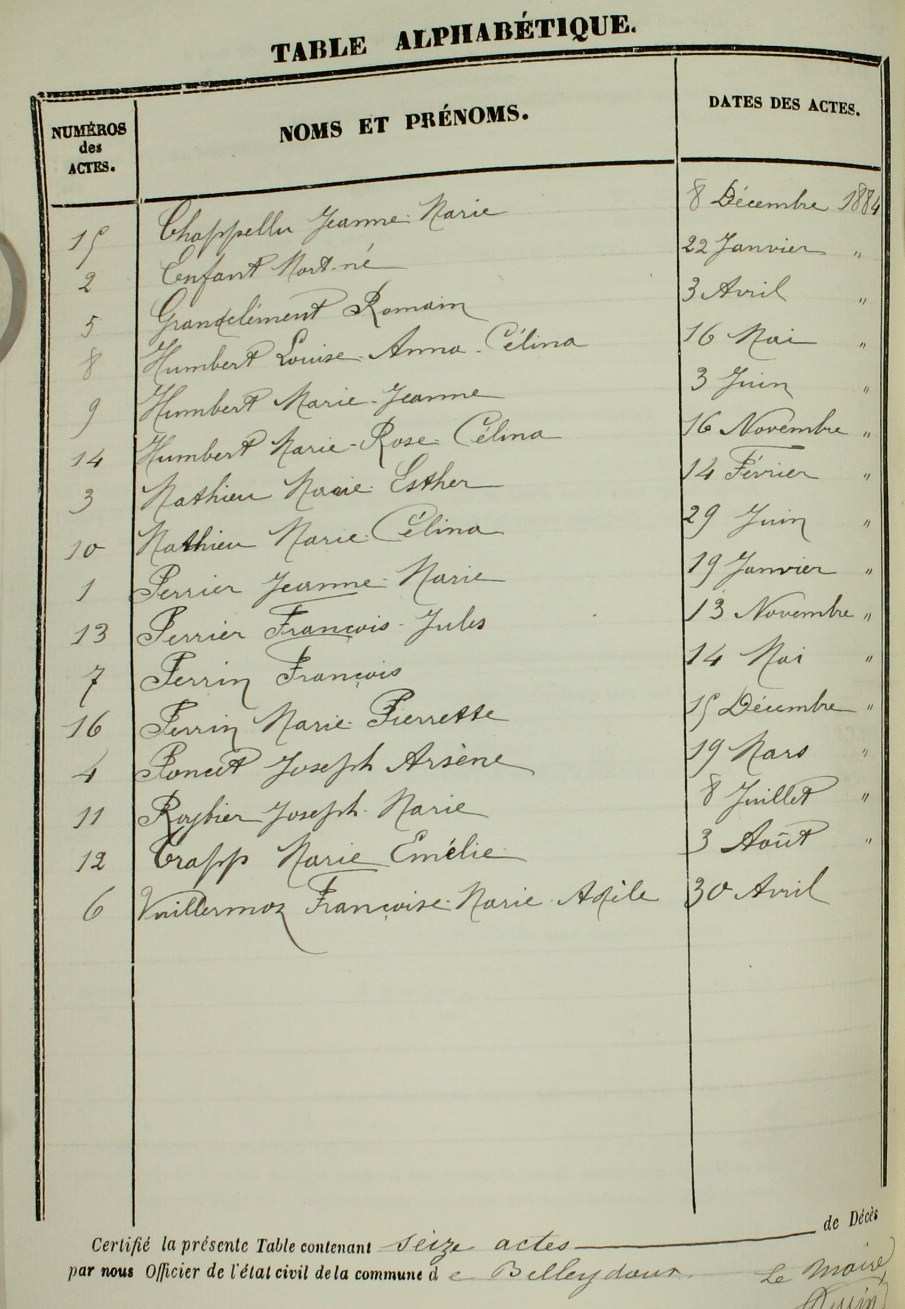 TABLE ALPHABÉTIQUE.
NUMÉROS des ACTES. NOMS ET PRÉNOMS. DATES DES ACTES.
15 Chappellu Jeanne Marie 8 Décembre 1884
2 Enfant Mort-né 22 Janvier "
5 Grandclément Romain 3 Avril "
8 Humbert Louise Anna Célina 16 Mai "
9 Humbert Marie-Jeanne 3 Juin "
14 Humbert Marie-Rose Célina 16 Novembre "
3 Mathieu Marie Esther 14 Février "
10 Mathieu Marie Célina 29 Juin "
1 Perrier Jeanne Marie 19 Janvier "
13 Perrier François-Jules 13 Novembre "
7 Perrin François 14 Mai "
16 Perrin Marie Pierrette 15 Décembre "
4 Poncet Joseph Arsène 19 Mars "
11 Roybier Joseph Marie 8 Juillet "
12 Trapp Marie Emélie 3 Août "
6 Vuillermoz Françoise Marie Adèle 30 Avril
Certifié la présente Table contenant seize actes de Décès
par nous Officier de l'état civil de la commune de Belleydoux
Le Maire,